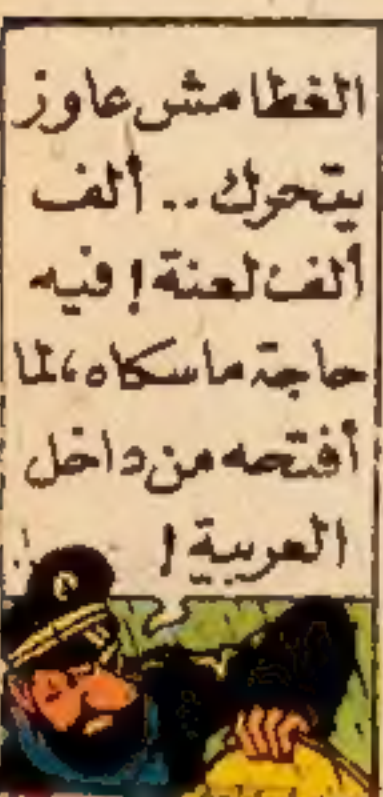 الغطا مش عاوز
يتحرك.. ألف
ألف لعنة! فيه
حاجة ماسكاه، لما
أفتحه من داخل
العربية!